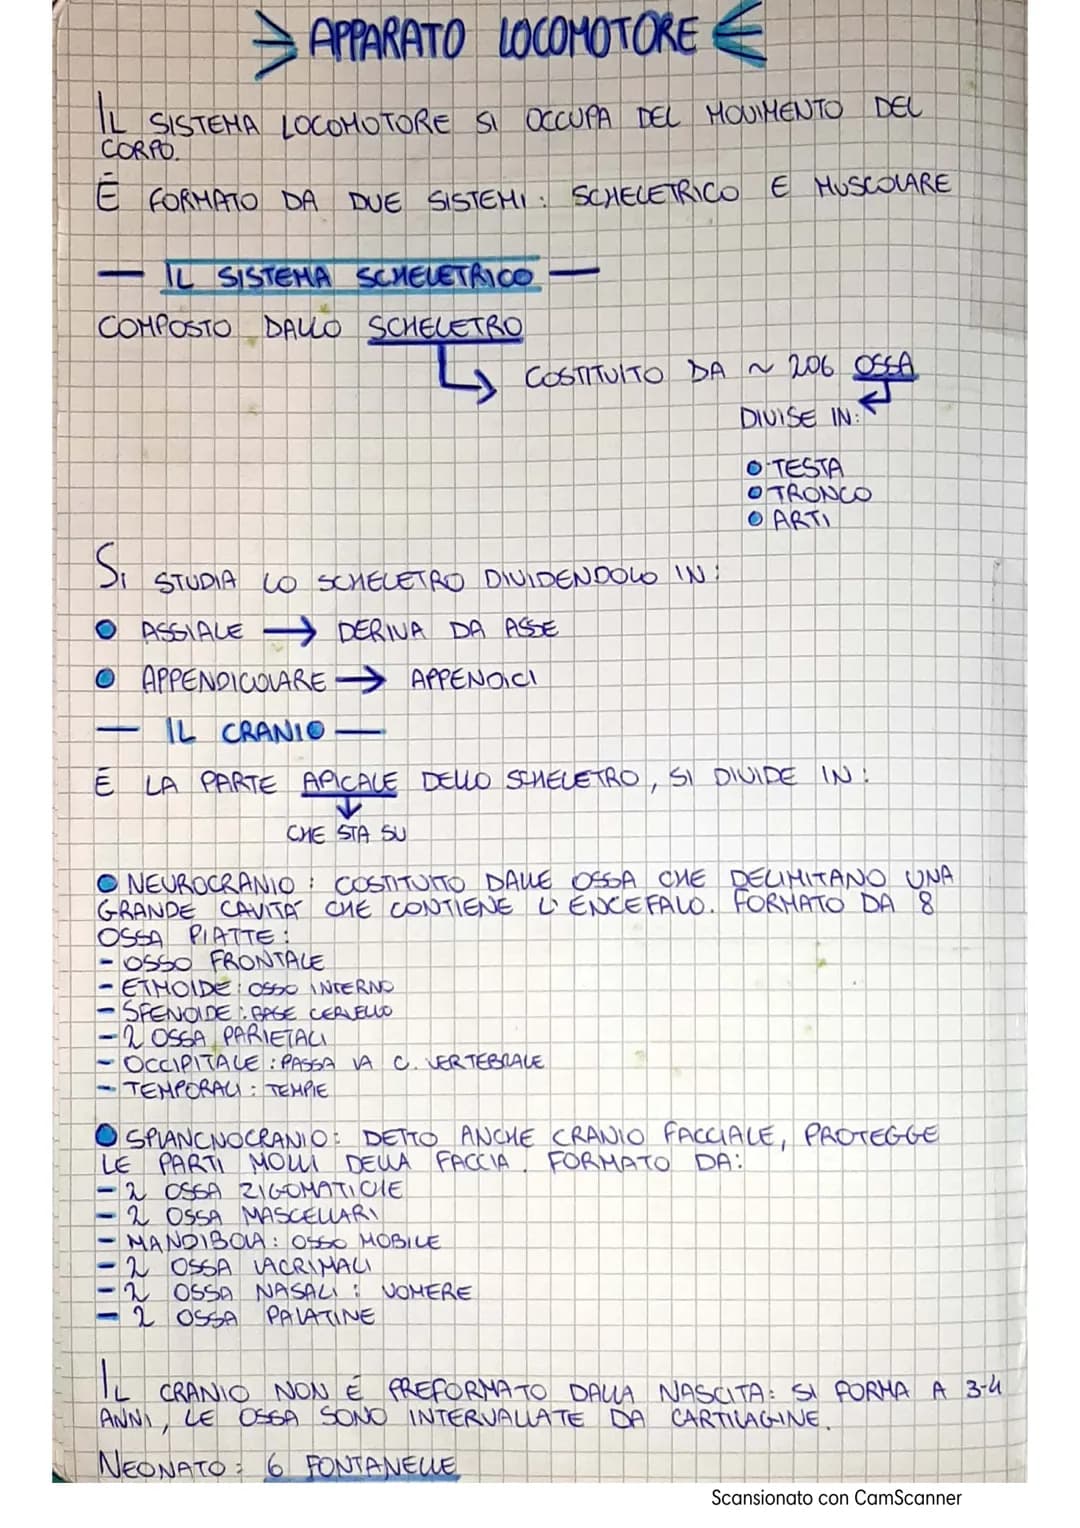 APPARATO LOCOMOTORE
IL SISTEMA LOCOMOTORE SI OCCUPA DEL MOVIMENTO DEL
CORPO.
È FORMATO DA DUE SISTEMI: SCHELETRICO E MUSCOLARE
— IL SISTEMA SCHELETRICO —
COMPOSTO DALLO SCHELETRO
COSTITUITO DA ~ 206 OSSA
DIVISE IN:
TESTA
TRONCO
ARTI
SI STUDIA LO SCHELETRO DIVIDENDOLO IN:
ASSIALE → DERIVA DA ASSE
APPENDICOLARE → APPENDICI
— IL CRANIO —
È LA PARTE APICALE DELLO SCHELETRO, SI DIVIDE IN:
CHE STA SU
NEUROCRANIO: COSTITUITO DALLE OSSA CHE DELIMITANO UNA
GRANDE CAVITÀ CHE CONTIENE L'ENCEFALO. FORMATO DA 8
OSSA PIATTE:
- OSSO FRONTALE
- ETMOIDE: OSSO INTERNO
- SFENOIDE: BASE CERVELLO
- 2 OSSA PARIETALI
- OCCIPITALE: PASSA LA C. VERTEBRALE
- TEMPORALI: TEMPIE
SPLANCNOCRANIO: DETTO ANCHE CRANIO FACCIALE, PROTEGGE
LE PARTI MOLLI DELLA FACCIA. FORMATO DA:
- 2 OSSA ZIGOMATICHE
- 2 OSSA MASCELLARI
- MANDIBOLA: OSSO MOBILE
- 2 OSSA LACRIMALI
- 2 OSSA NASALI: VOMERE
- 2 OSSA PALATINE
IL CRANIO NON È PREFORMATO DALLA NASCITA: SI FORMA A 3-4
ANNI, LE OSSA SONO INTERVALLATE DA CARTILAGINE.
NEONATO: 6 FONTANELLE
Scansionato con CamScanner